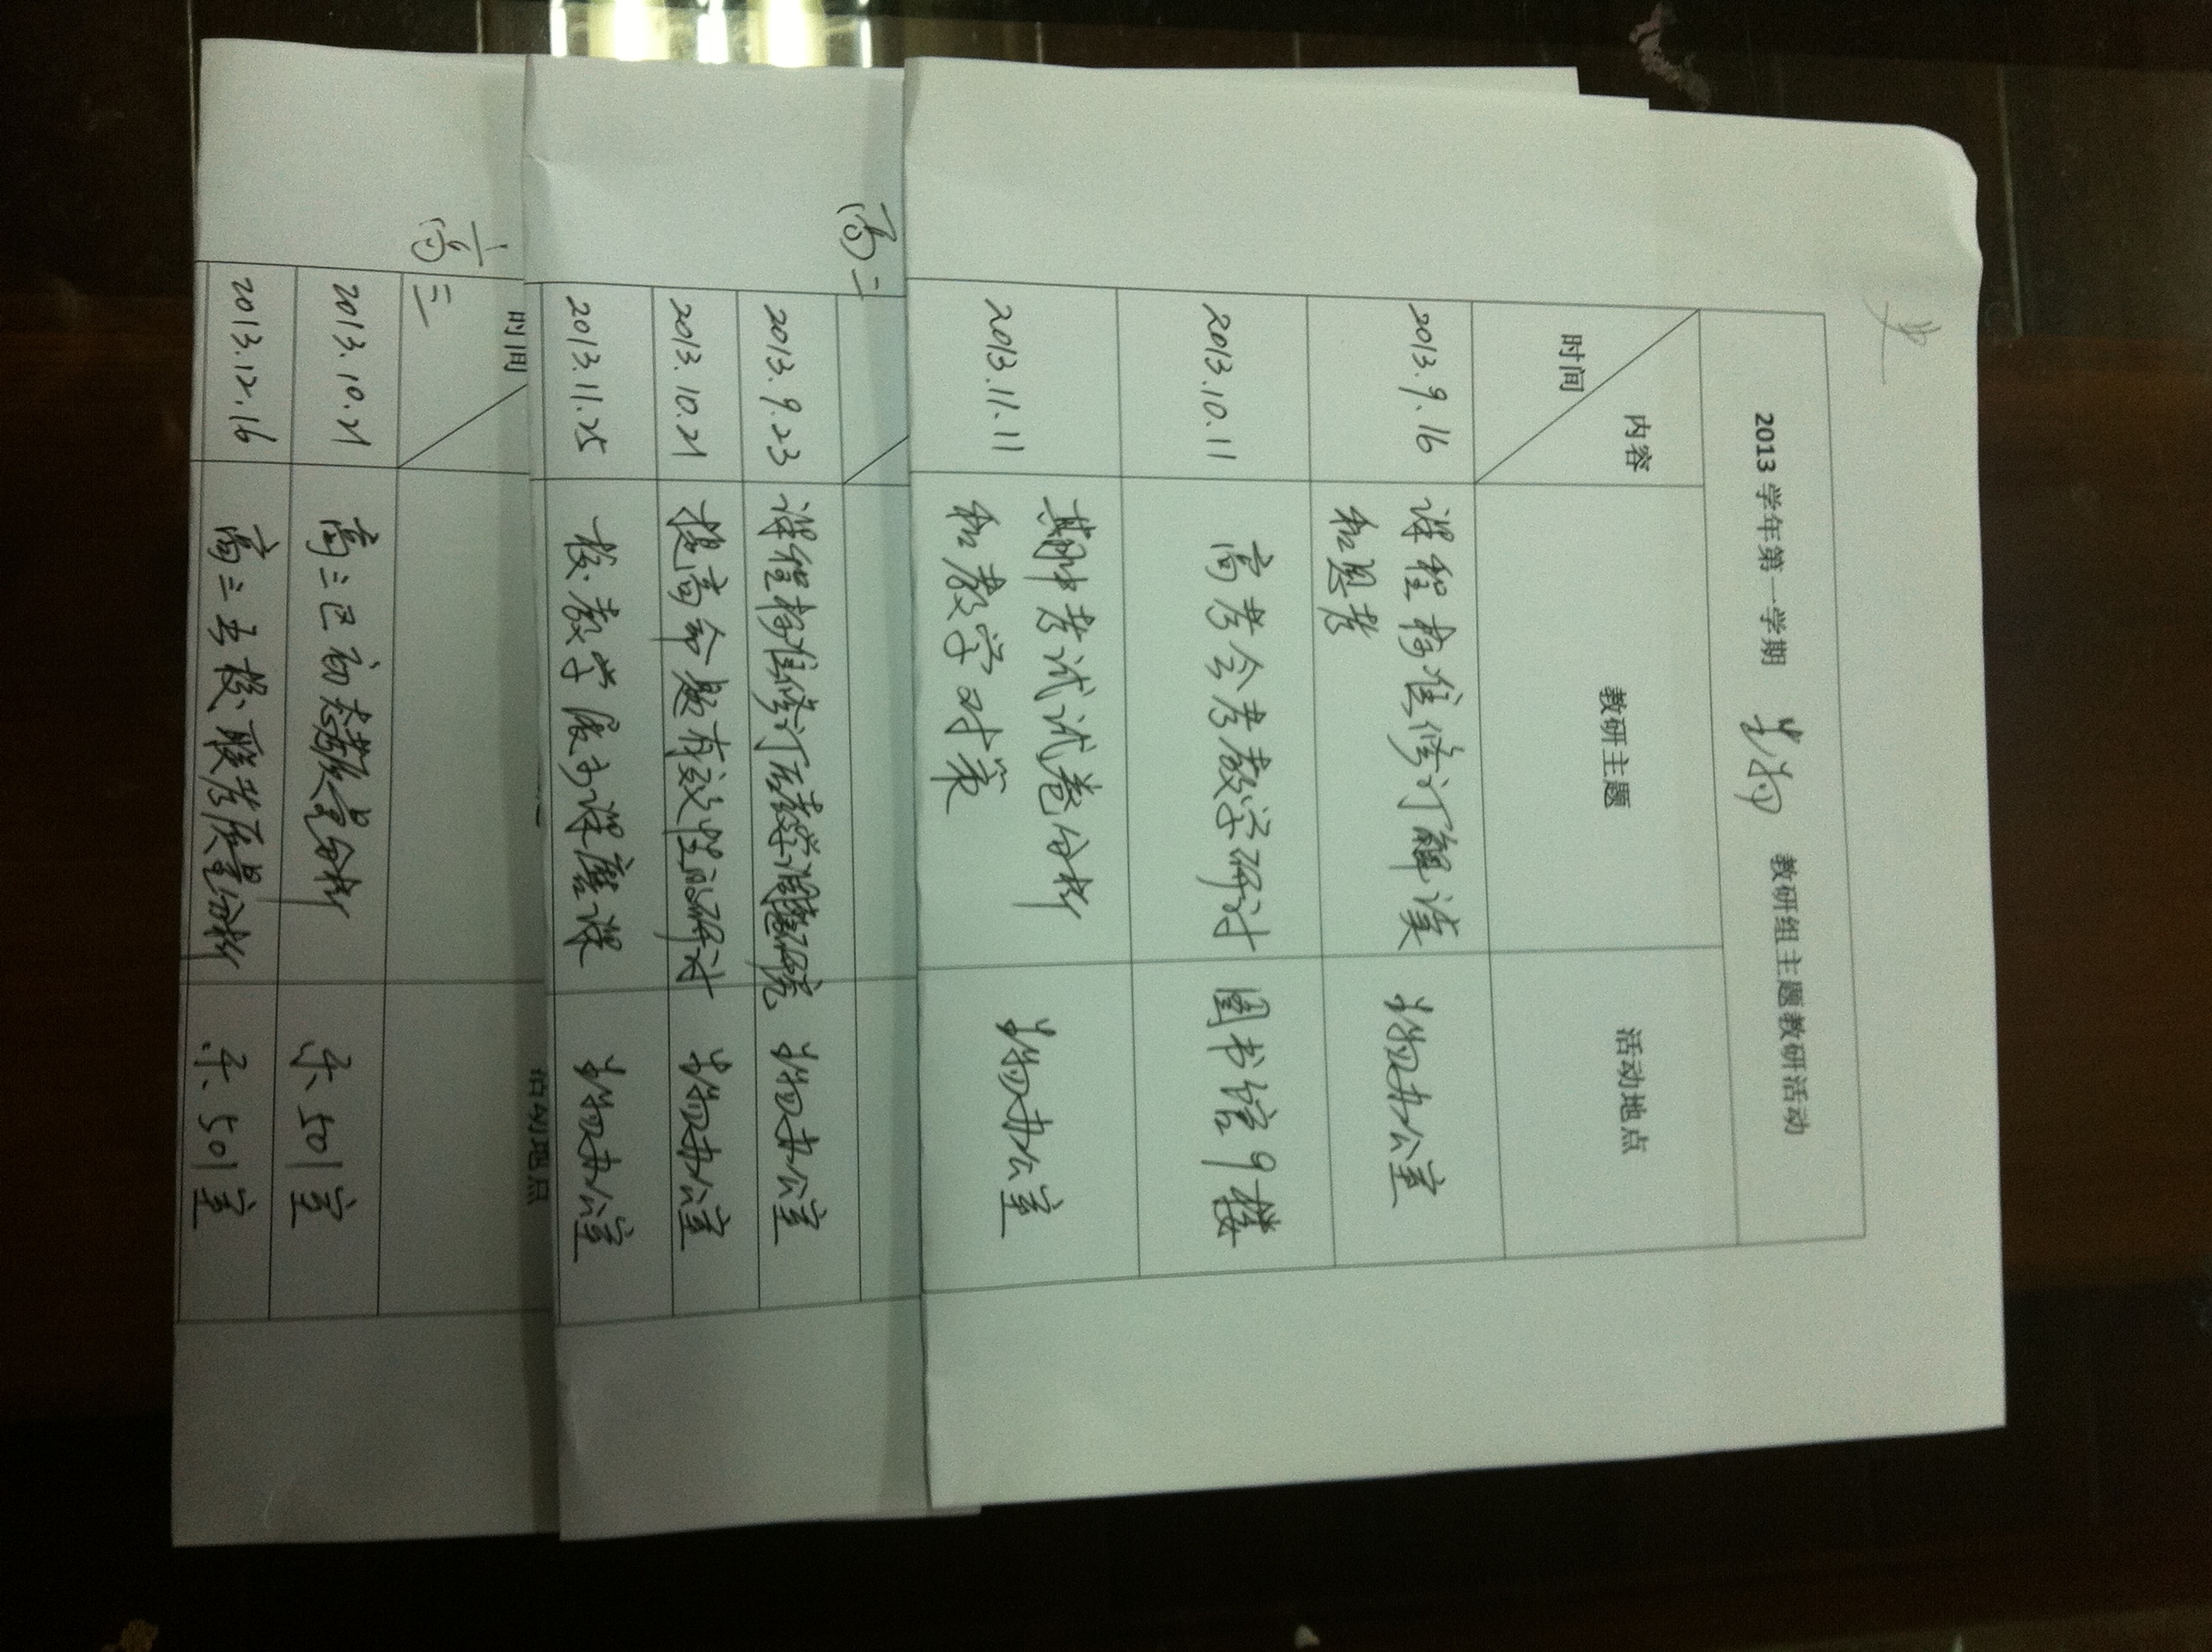 2013 学年第一学期 生物 教研组主题教研活动
内容
时间
教研主题
活动地点
2013.9.16 课程标准修订解读 生物办公室
和思考
2013.10.11 高考会考教学研讨 图书馆9楼
2013.11.11 期中考试试卷分析 生物办公室
和教学对策
高二
2013.9.23 课程标准修订后教学问题研究 生物办公室
2013.10.21 提高命题有效性的研讨 生物办公室
2013.11.25 校教学展示课磨课 生物办公室
高三
时间
活动地点
2013.10.21 高三区初态教学质量分析 乐501室
2013.12.16 高三五校联考质量分析 乐501室